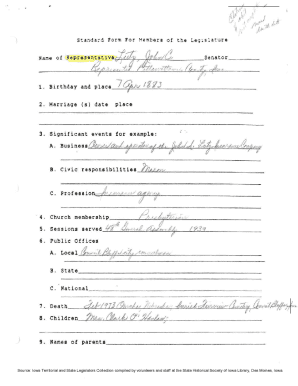 Standard Form For Members of the Legislature
Name of Representative John C. Senator
Represented Pottawattamie County, Iowa
1. Birthday and place 7 Apr 1883
2. Marriage (s) date place
3. Significant events for example:
A. Business Owner and operator of the John C. Insurance Company
B. Civic responsibilities Mason
C. Profession Insurance agency
4. Church membership Presbyterian
5. Sessions served 48th General Assembly 1939
6. Public Offices
A. Local Council Bluffs city
B. State
C. National
7. Death Feb 1973 Buried Cemetery, Council Bluffs, Ia
8. Children Mrs. Charles
9. Names of parents
Source: Iowa Territorial and State Legislators Collection compiled by volunteers and staff at the State Historical Society of Iowa Library, Des Moines, Iowa.